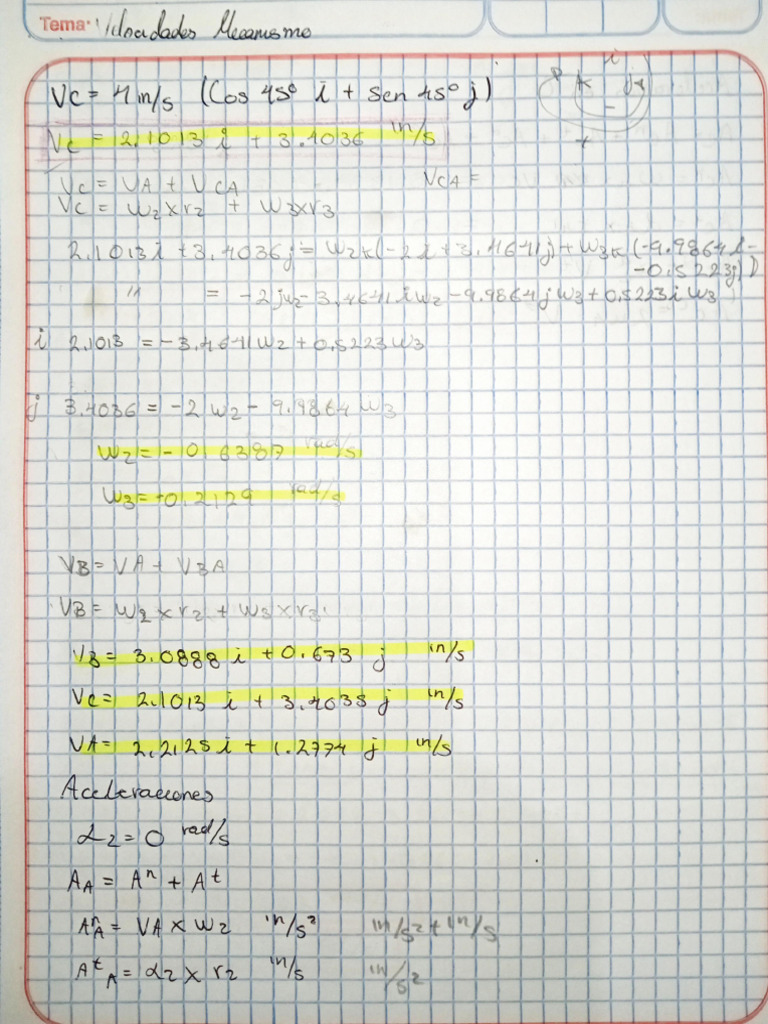 Tema: Velocidades Mecanismo
Vc = 4 in/s (Cos 45° i + sen 45° j)
Vc = 2.1013 i + 3.4036 in/s
Vc = VA + VCA VCA =
Vc = w2 x r2 + w3 x r3
2.1013 i + 3.4036 j = w2k(-2i + 3.4641j) + w3k (-9.9864i-
-0.5223j)
" = -2jw2 - 3.4641 i w2 - 9.9864 j w3 + 0.5223 i w3
i 2.1013 = -3.4641 w2 + 0.5223 w3
j 3.4036 = -2 w2 - 9.9864 w3
w2 = -0.6387 rad/s
w3 = -0.2129 rad/s
VB = VA + VBA
VB = w2 x r2 + w3 x r3'
VB = 3.0888 i + 0.673 j in/s
Vc = 2.1013 i + 3.4035 j in/s
VA = 2.2125 i + 1.2774 j in/s
Aceleraciones
α2 = 0 rad/s
AA = Aⁿ + Aᵗ
AⁿA = VA x w2 in/s² in/s² + in/s
AᵗA = α2 x r2 in/s in/s²